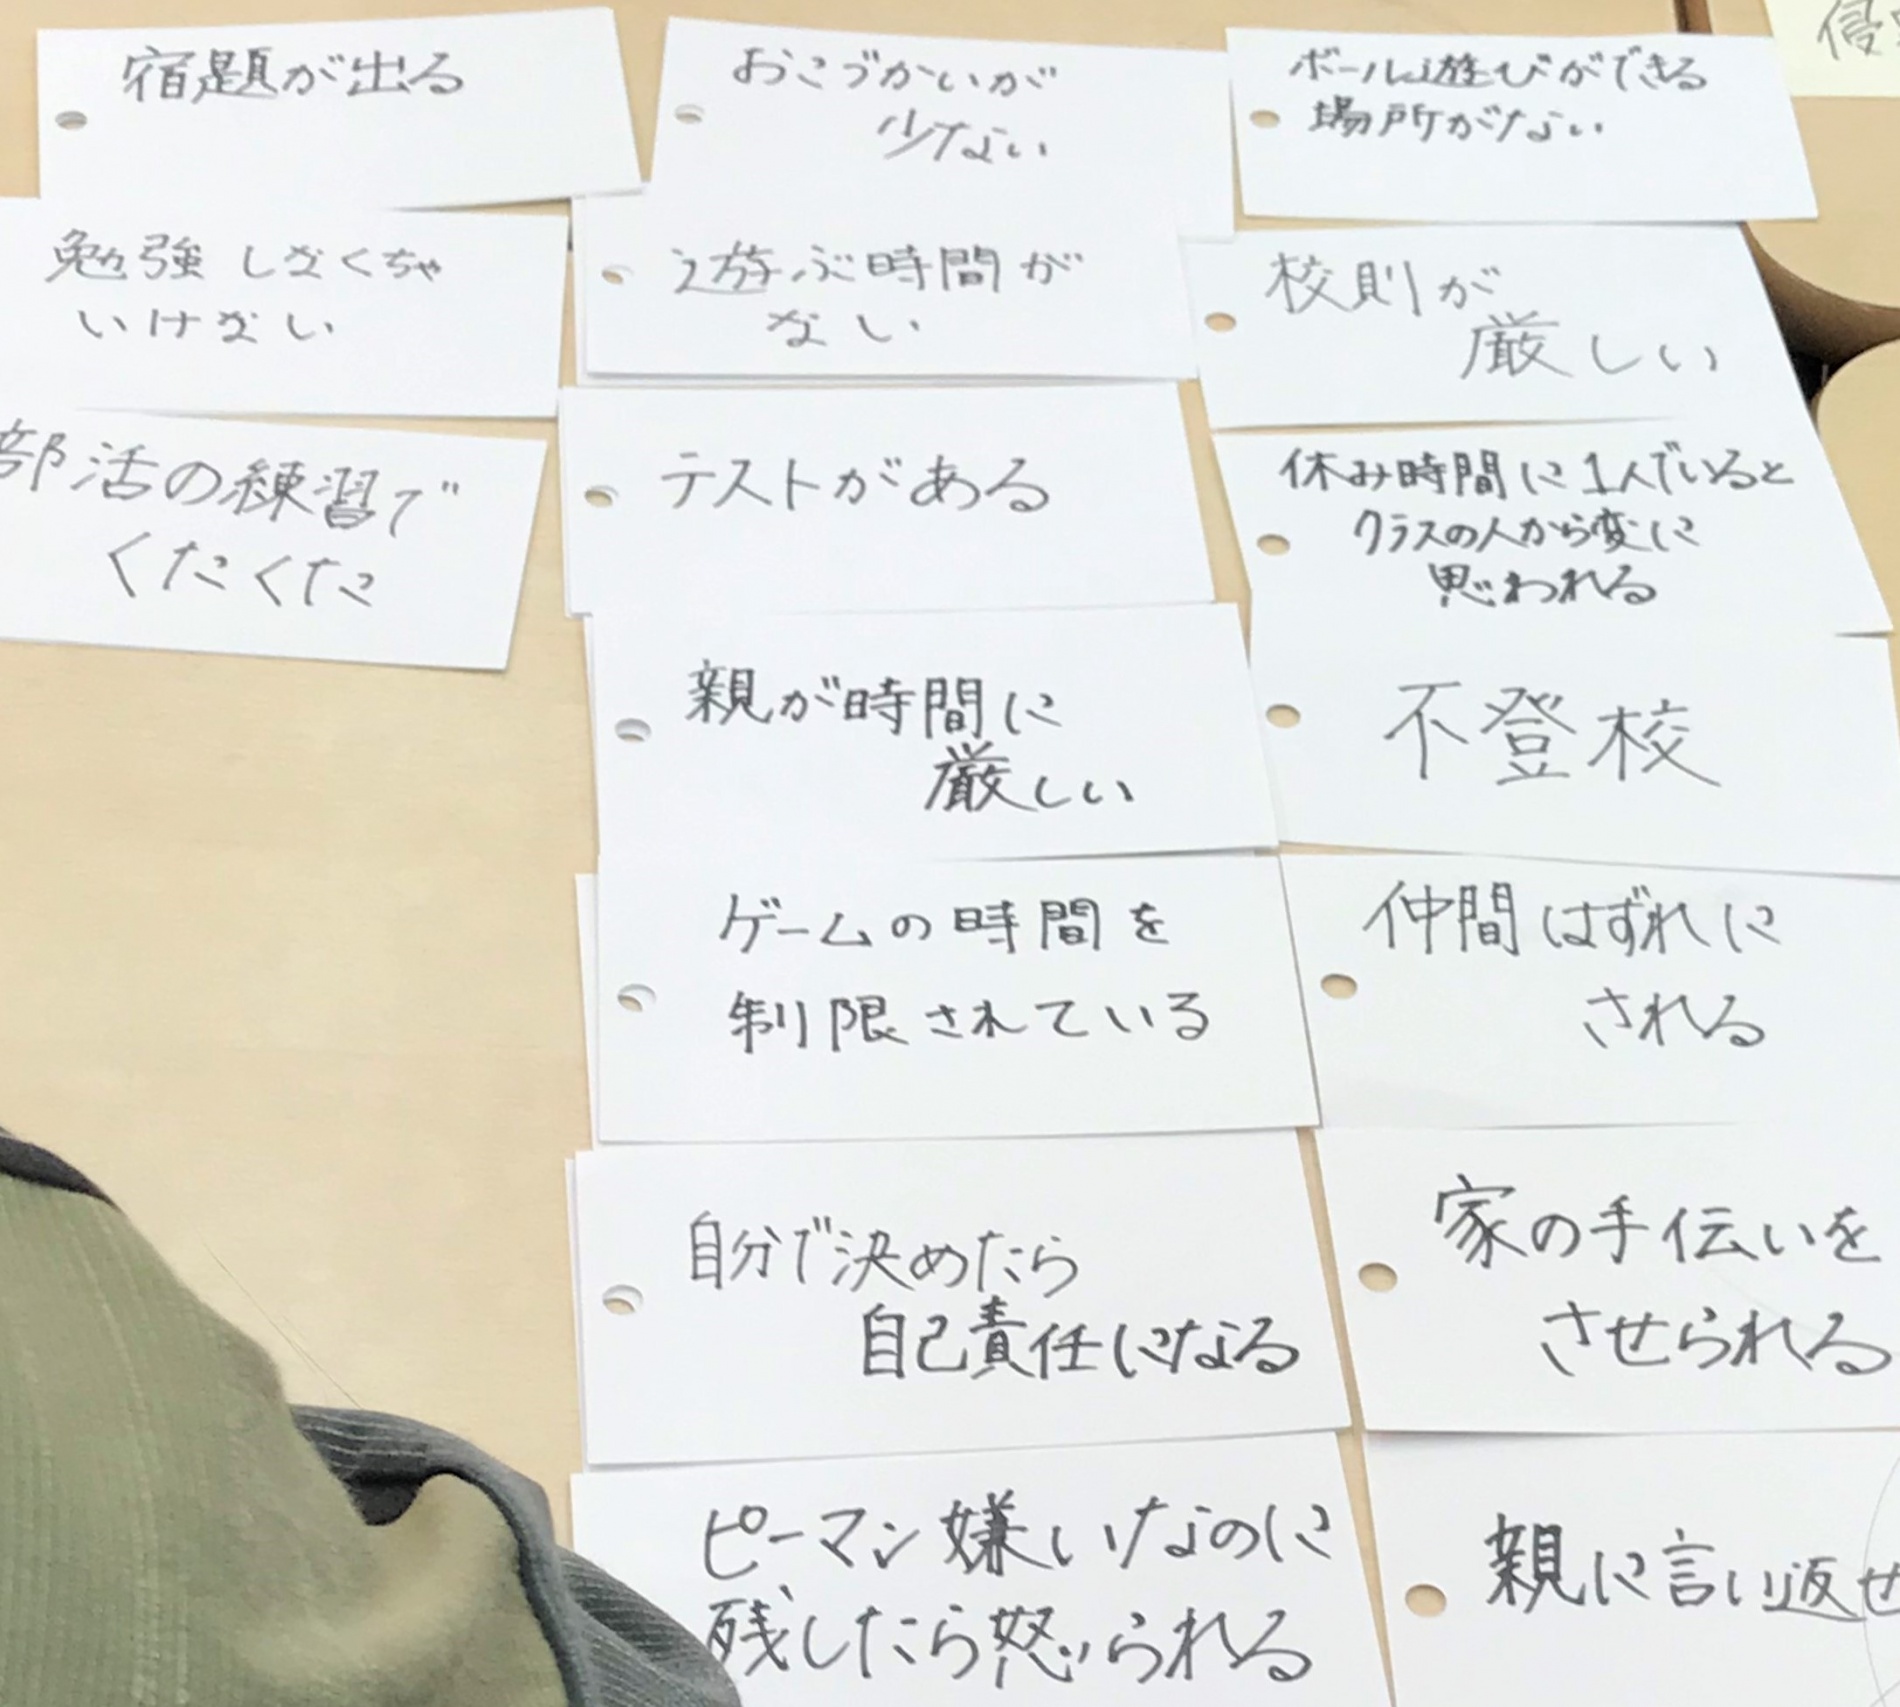 宿題が出る
勉強しなくちゃ
いけない
部活の練習で
くたくた
おこづかいが
少ない
遊ぶ時間が
ない
テストがある
親が時間に
厳しい
ゲームの時間を
制限されている
自分で決めたら
自己責任になる
ピーマン嫌いなのに
残したら怒られる
ボール遊びができる
場所がない
校則が
厳しい
休み時間に1人でいると
クラスの人から変に
思われる
不登校
仲間はずれに
される
家の手伝いを
させられる
親に言い返せ
侵